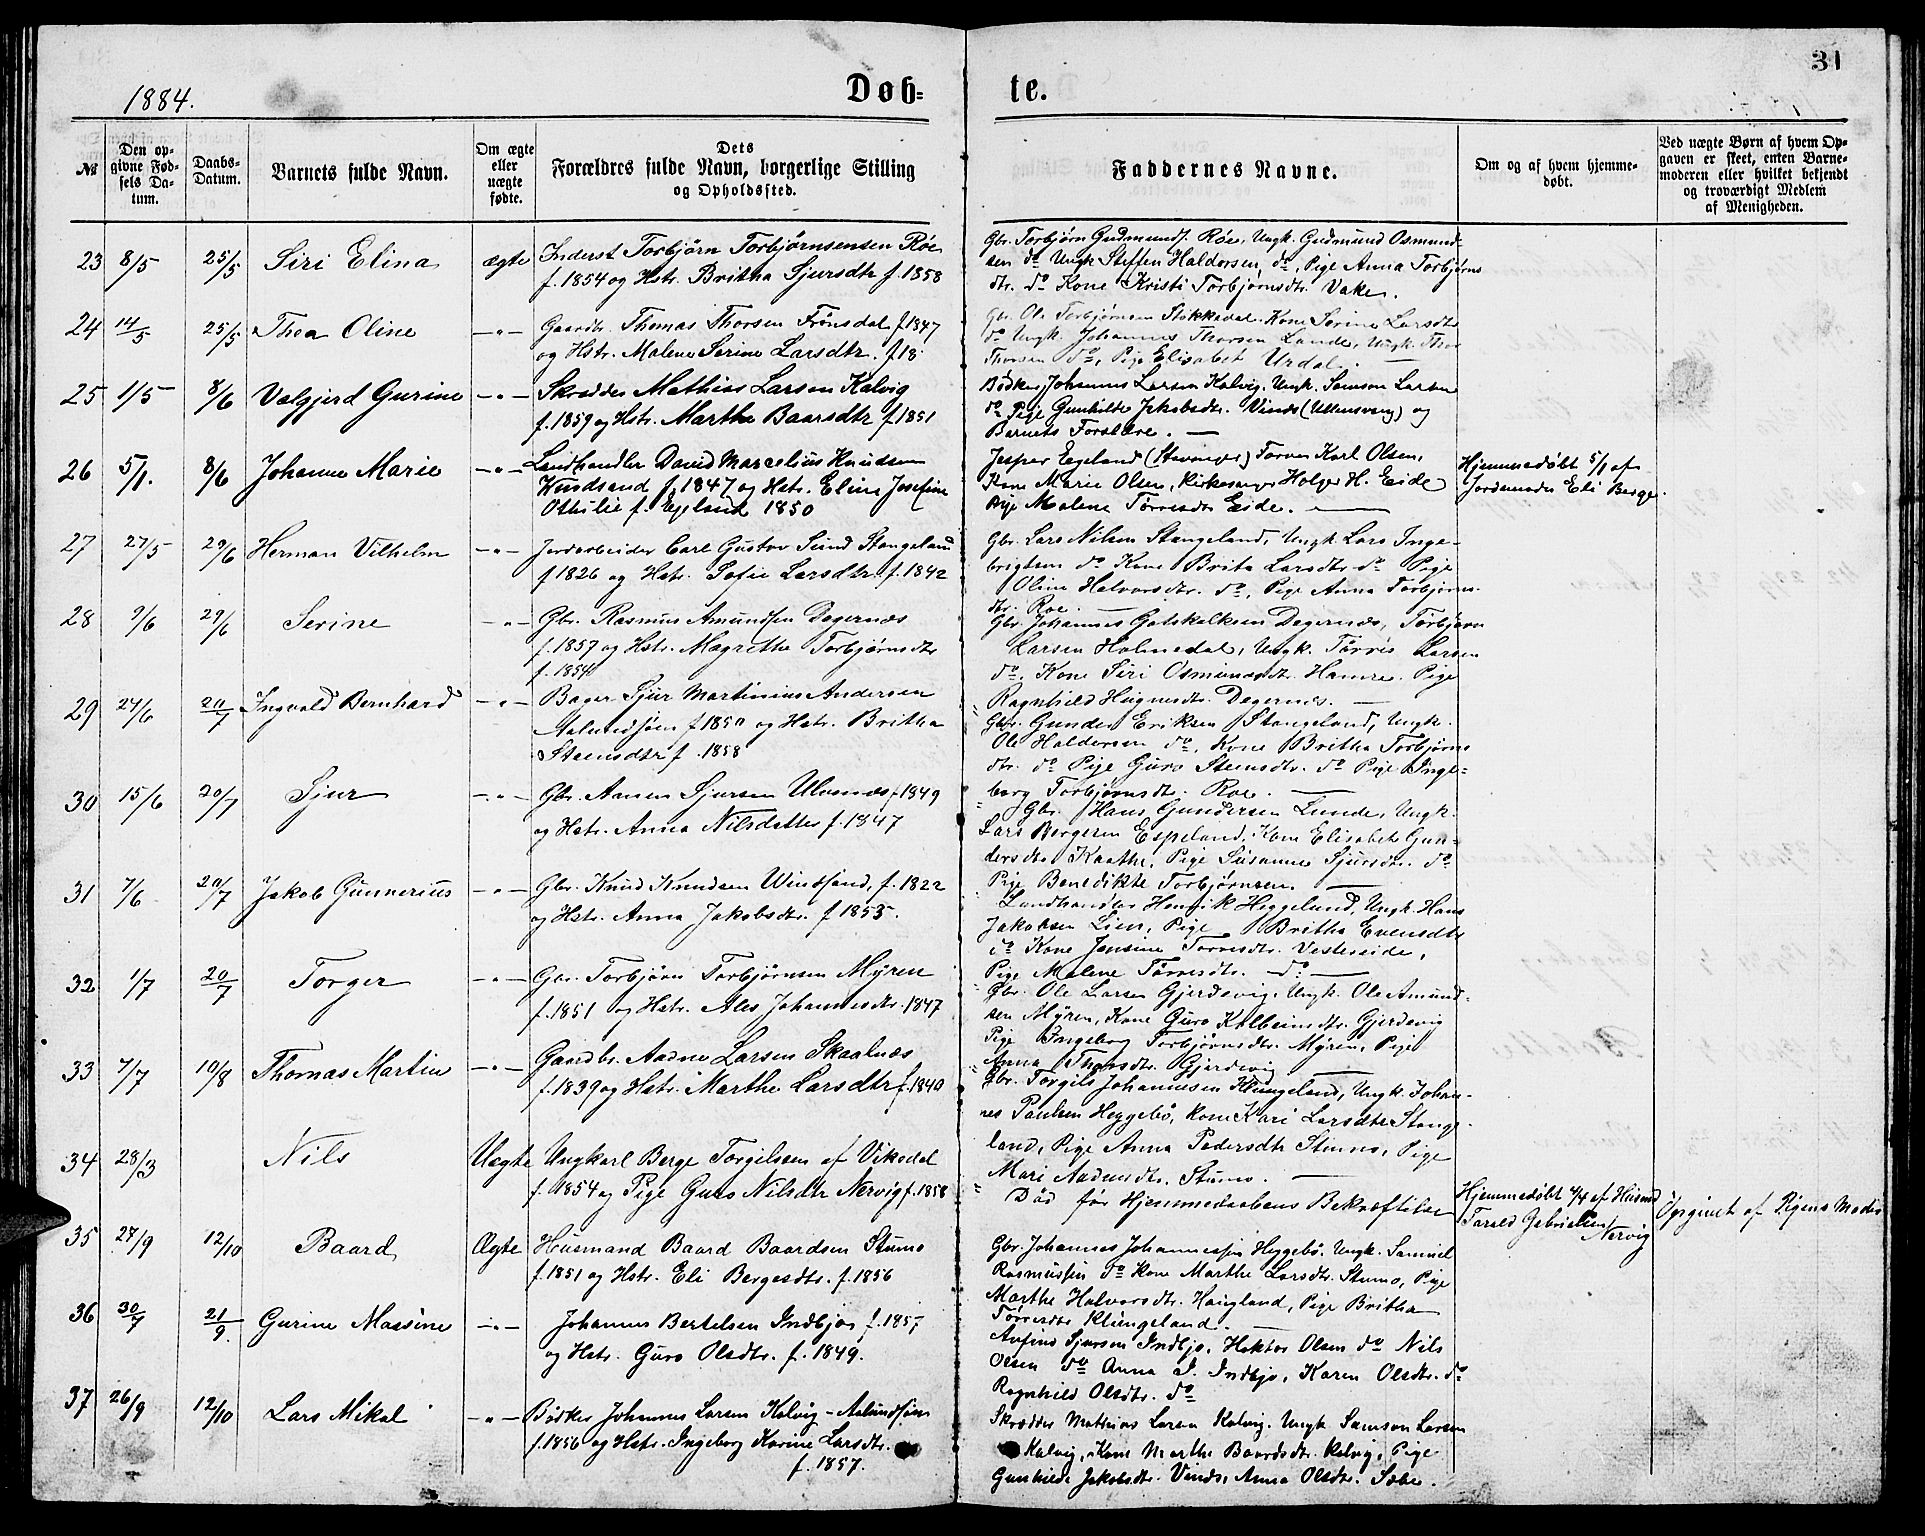 31
1884.
Døb-
te.
№
Den op-
givne Fød-
sels Da-
tum.
Daabs-
Datum.
Barnets fulde Navn.
Om ægte
eller
uægte
fødte.
Dets
Forældres fulde Navn, borgerlige Stilling
og Opholdssted.
Faddernes Navne.
Om og af hvem hjemme-
døbt.
Ved uægte Børn af hvem Op-
gaven er skeet, enten Barne-
moderen eller hvilket bekjendt
og troværdigt Medlem
af Menigheden.
23 8/5 25/5 Siri Elina ægte Inderst Torbjørn Torbjørnsensen Röe
f. 1854 og Hstr. Britha Sjursdtr f. 1858
Gbr. Torbjørn Gudmunds. Röe, Ungk. Gudmund Osmund-
sen do Ungk Steffen Haldorsen, do, Pige Anna Torbjørns
dtr. do Kone Kristi Torbjørnsdtr. Vake.
24 14/5 25/5 Thea Oline -"- Gaardbr. Thomas Thorsen Frönsdal f 1847
og Hstr. Malene Serine Larsdtr. f 18
Gbr. Ole Torbjörnsen Stokkedal. Kone Serine Larsdtr
do Ungk. Johannes Thorsen Lunde, Ungk. Thor
Thorsen do, Pige Elisabet Urdal.
25 1/5 8/6 Valgjerd Gurine -"- Skrædder Mathias Larsen Kalvig
f. 1859 og Hstr. Marthe Baarsdtr f. 1851
Bödker Johannes Larsen Kalvig. Ungk. Samson Larsen
do Pige Gunhilde Jakobsdtr. Vinds (Ullensvang) og
Barnets Forældre.
26 5/1. 8/6 Johanne Marie -"- Landhandler David Marcelius Knudsen
Knudsand f. 1847 og Hstr. Eline Josefine
Othilie f. Egeland 1850
Jesper Egeland (Stavanger) Farver Karl Olsen,
Kone Marie Olsen, Kirkesanger Holger H. Eide
Pige Malene Tørresdtr Eide.
Hjemmedøbt 5/1 af
Jordemoder Eli Berge.
27 27/5 29/6 Herman Vilhelm -"- Jordarbeider Carl Gustav Sund Stangeland
f 1826 og Hstr. Sofie Larsdtr. f. 1842
Gbr. Lars Nilsen Stangeland, Ungk Lars Inge-
brigtsen do Kone Brita Larsdtr do Pige
Oline Halvorsdtr. do, Pige Anna Torbjørns-
dtr. Roe.
28 9/6 29/6 Serine -"- Gbr. Rasmus Amundsen Degernæs
f. 1857 og Hstr. Magrethe Torbjørnsdtr
f. 1854
Gbr. Johannes Gotskalksen Degernæs, Torbjørn
Larsen Holmedal, Ungk. Tørris Larsen
do. Kone Siri Osmundsdtr. Hamre. Pige
Ragnhild Hugnesdtr. Degernes.
29 27/6 20/7 Ingvald Bernhard -"- Bager Sjur Martinius Andersen
Aalundsjøen f 1850 og Hstr. Britha
Steensdtr f. 1858
Gbr. Gunder Eriksen Stangeland, Ungk.
Ole Haldorsen do. Kone Britha Torbjørns
dtr. do Pige Guro Steensdtr. do Pige Inge-
borg Torbjørnsdtr. Roe.
30 15/6 20/7 Sjur -"- Gbr. Aanen Sjursen Ulvenæs f 1849
og Hstr. Anna Nilsdatter f. 1847
Gbr. Hans Gundersen Lunde, Ungk.
Lars Bergesen Espeland, Kone Elisabet Gun-
dersdtr Kaathe, Pige Susanne Sjursdtr. do
Pige Benedikte Torbjørnsen.
31 7/6 20/7 Jakob Gunnerius -"- Gbr. Knud Knudsen Windsand, f. 1822
og Hstr. Anna Jakobsdtr. f 1853.
Landhandler Henrik Heggelund, Ungk. Hans
Jakobsen Lien, Pige Britha Evensdtr
do Kone Jensine Tørresdtr. Vestereide,
Pige Malene Tørresdtr. do
32 1/7 20/7 Torger -"- Gbr. Torbjørn Torbjørnsen Myren
f. 1851 og Hstr. Ales Johannesdtr. 1847
Gbr. Ole Larsen Gjerdevig. Ungk. Ole Amund-
sen Myren, Kone Guro Kolbeinsdtr. Gjerdevig
Pige Ingeborg Torbjørnsdtr. Myren, Pige
Anna Thorsdtr. Gjerdevig
33 7/7 10/8 Thomas Martin -"- Gaardbr. Aadne Larsen Skaalnæs
f. 1839 og Hstr. Marthe Larsdtr f. 1840
Gbr. Torgils Johannesen Klungeland, Ungk. Johan-
nes Paulsen Heggebö, Kone Kari Larsdtr Stange-
land, Pige Anna Pedersdtr Stumo, Pige
Mari Aadnesdtr. Stumo.
34 28/3 Nils Uægte Ungkarl Berge Torgilssen af Vikedal
f. 1854 og Pige Guro Nilsdtr Nervig f. 1858
Död før Hjemmedaabens Bekræftelse
Hjemmedøbt 4/4 af Husmd
Tarald Gabrielsen
Nervig
Opgivet af Pigens Moder
35 27/9 12/10 Baard Ægte Husmand Baard Baardsen Stumo
f. 1851 og Hstr. Eli Bergesdtr. f. 1856
Gbr. Johannes Johannessen Heggebö. Ungk. Samuel
Rasmussen do Kone Marthe Larsdtr. Stumo, Pige
Marthe Halvorsdtr. Haugland, Pige Britha
Tørresdtr Klungeland.
36 30/7 21/9. Gurine Massine -"- Johannes Bertelsen Indbjo f. 1857
og Hstr. Guro Olsdtr. f. 1849.
Anfind Sjursen Indbjo. Hektor Olsen do Nils
Olsen do Anna I. Indbjo, Karen Olsdtr. do
Ragnhild Olsdtr. do
37 26/9 12/10 Lars Mikal -"- Bødker Johannes Larsen Kalvig - Aalundsjøen
f. 1856 og Hstr. Ingeborg Karine Larsdtr.
f. 1857.
Skrædder Mathias Larsen Kalvig. Ungk Samson Larsen
Kalvig, Kone Marthe Baardsdtr. Kalvig, Pige
Gunhilde Jakobsdtr. Vinds, Anna Olsdtr. Sæbe.